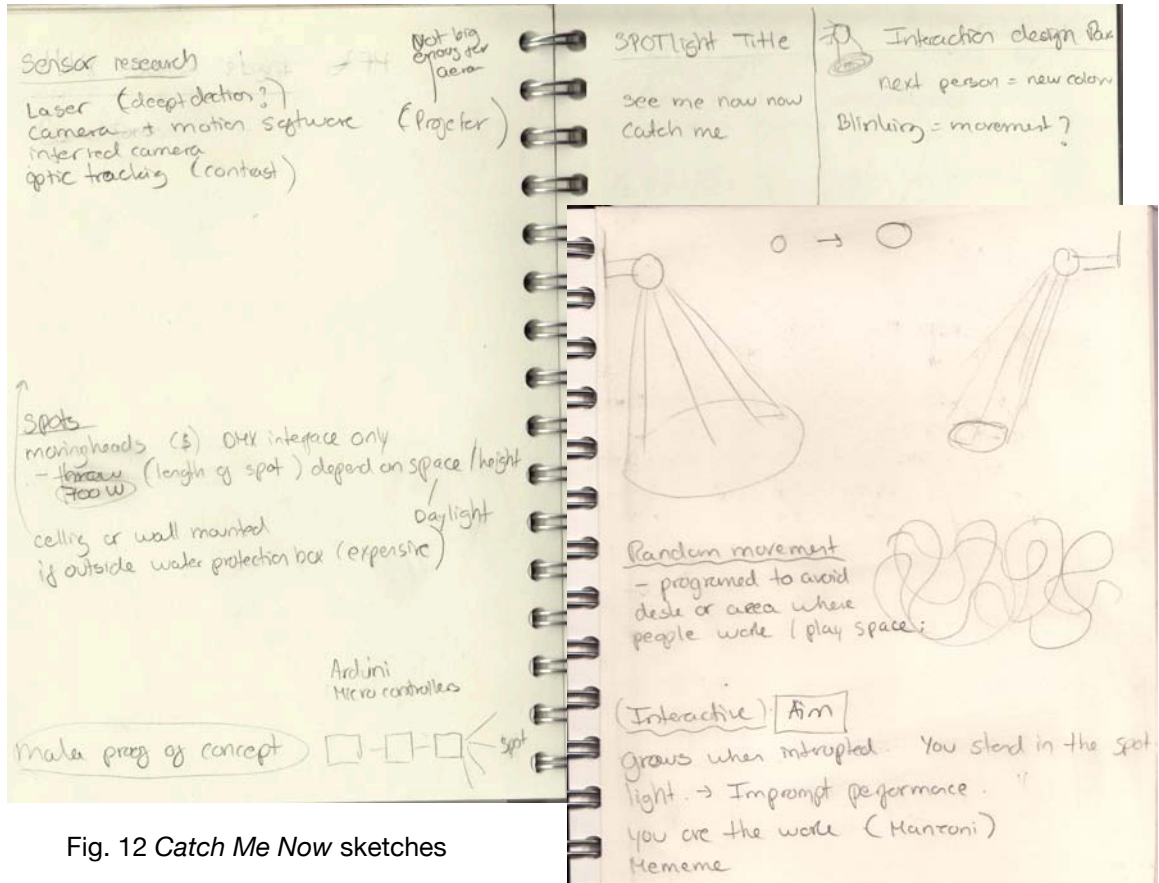 Sensor research
Not big
enough for
aera
Laser (deept dection?)
camera + motion software (Projeter)
infrred camera
optic tracking (contrast)
Spots
movingheads ($) DMX interface only
- throw (length of spot) depend on space / height
700 W
Daylight
celling or wall mounted
if outside water protection box (expensive)
Arduini
Micro controllers
spot
SPOTlight Title
see me now now
catch me
Interaction design
next person = new color
Blinking = movement?
Random movement
- programed to avoid
desk or area where
people work / play space;
(Interactive) Aim
grows when intrupted. You stand in the spot
light. → Imprompt performance.
you are the work (Manzoni)
Mememe
Fig. 12 Catch Me Now sketches